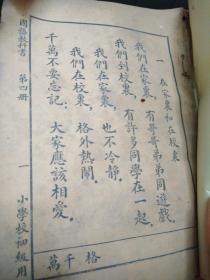 一 在家裏和在校裏
我們在家裏，有哥哥弟弟同遊戲。
我們到校裏，有許多同學在一起。
我們在家裏，也不冷靜。
我們在校裏，格外熱鬧。
千萬不要忘記：大家應該相愛。
格 千 萬
國語教科書 第四冊 一 小學校初級用